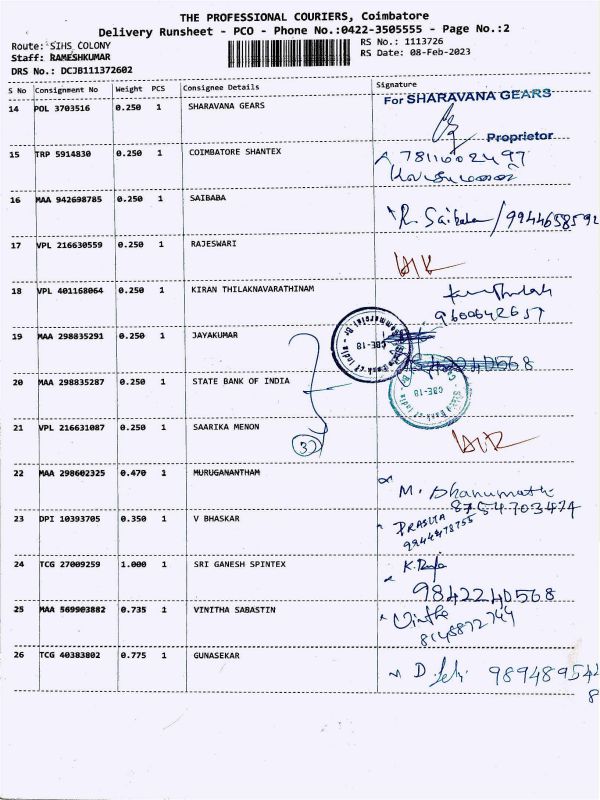 THE PROFESSIONAL COURIERS, Coimbatore
Delivery Runsheet - PCO - Phone No.:0422-3505555 - Page No.:2
Route: SIHS COLONY
RS No.: 1113726
Staff: RAMESHKUMAR
RS Date: 08-Feb-2023
DRS No.: DCJB111372602
S No Consignment No Weight PCS Consignee Details Signature
14 POL 3703516 0.250 1 SHARAVANA GEARS For SHARAVANA GEARS
Proprietor
15 TRP 5914830 0.250 1 COIMBATORE SHANTEX
16 MAA 942698785 0.250 1 SAIBABA R. Saibaba / 9944658592
17 VPL 216630559 0.250 1 RAJESWARI
18 VPL 401168064 0.250 1 KIRAN THILAKNAVARATHINAM
9600642657
19 MAA 298835291 0.250 1 JAYAKUMAR
CBE-18
20 MAA 298835287 0.250 1 STATE BANK OF INDIA
CBE-18
21 VPL 216631087 0.250 1 SAARIKA MENON
32
22 MAA 298602325 0.470 1 MURUGANANTHAM M. Dhanumathi
8754703474
23 DPI 10393705 0.350 1 V BHASKAR PRASLIA
9944478755
24 TCG 27009259 1.000 1 SRI GANESH SPINTEX K. Raja
9842240568
25 MAA 569903882 0.735 1 VINITHA SABASTIN Vinitha
8148872744
26 TCG 40383802 0.775 1 GUNASEKAR D. 989489542
8